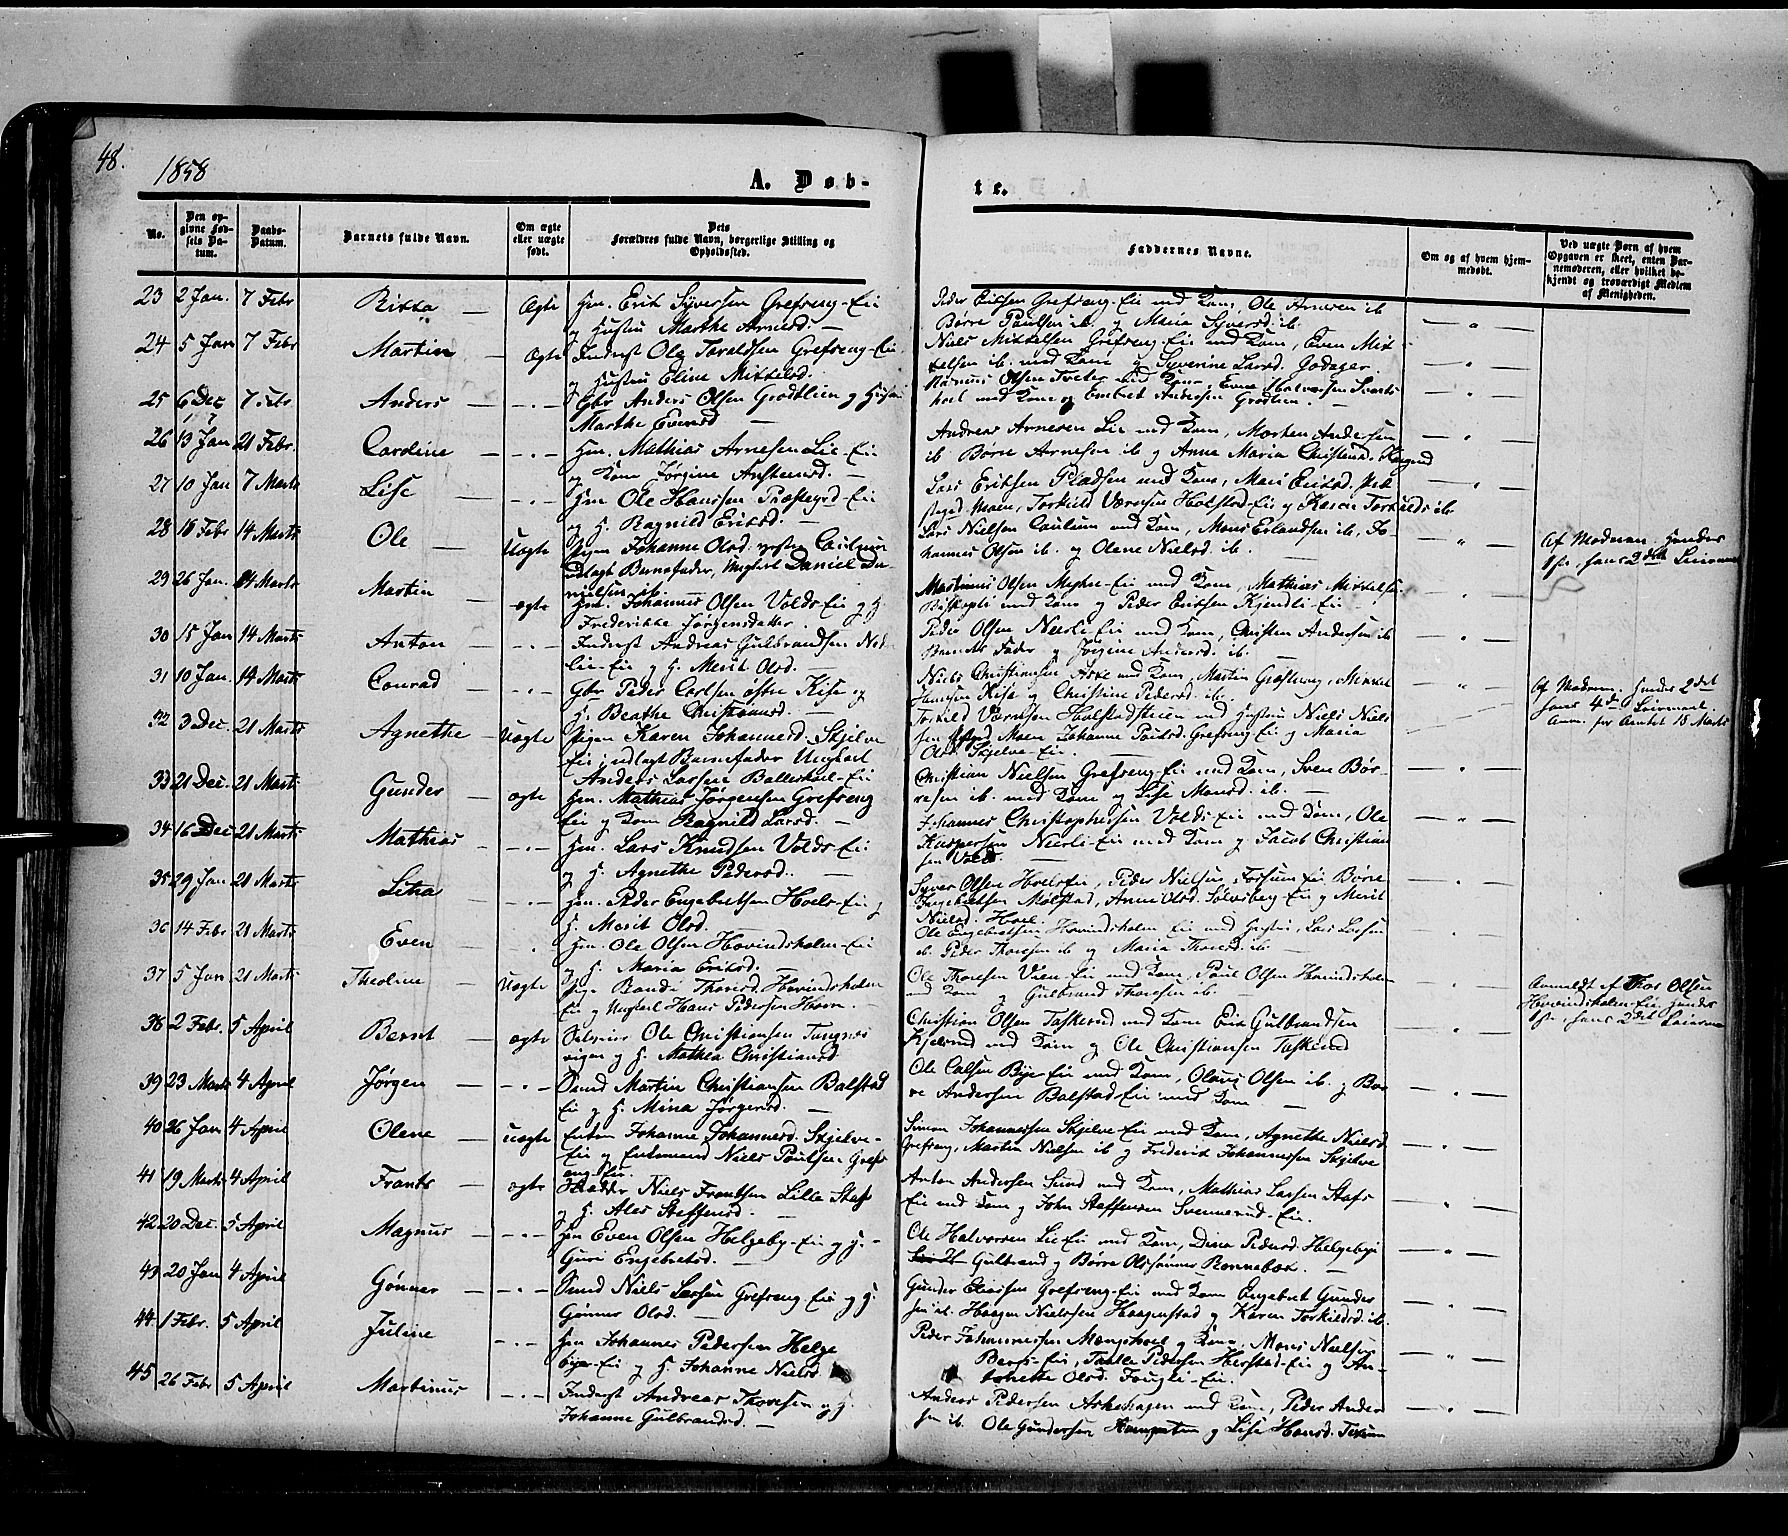 48.
1858
A. Døb-
te.
No.
Den op-
givne Fød-
sels Da-
tum.
Daabs-
Datum.
Barnets fulde Navn.
Om ægte
eller uægte
født.
Dets
Forældres fulde Navn, borgerlige Stilling og
Opholdssted.
Faddernes Navne.
Om og af hvem hjem-
medøbt.
Ved uægte Børn af hvem
Opgaven er skeet, enten Bar-
nemoderen, eller hvilket be-
kjendt og troværdigt Medlem
af Menigheden.
23 2 Jan. 7 Febr Ægte Hm. Erik Syversen Grefseng-Eie
og Hustru Marthe Arnesd. —
Peder Eriksen Grefseng-Eie med Kone, Ole Arnesen ib
Børre Paulsen ib. og Maria Syversd. ib.
24 5 Jan 7 Febr Martin — Ægte Inderst Ole Taraldsen Grefseng-Eie
og Hustru Eline Mikkelsd.
Niels Mikkelsen Grefseng-Eie med Kone, Even Mik-
kelsen ib. med Kone og Syverine Larsd. Jodager.
25 6 Dec 7 Febr Anders — Gbr Anders Olsen Grødtlien og Hustru
Marthe Evensd —
Rasmus Olsen Tveter med Kone, Even Halvorsen
hoel med Kone og Embret Andersen Grødlien.
26 13 Jan 21 Febr. Cardine — Hm. Mathias Arnesen Lie-Eie
og Kone Jørgine Anstensd. —
Andreas Arnesen Lie med Kone, Morten Andersen
ib Børre Arnesen ib og Anne Maria Christensd.
27 10 Jan 7 Marts Lise — Hm Ole Hansen Præstegrd-Eie
og H. Ragnild Eriksd. —
Lars Eriksen Pladsen med Kone, Mari Eriksd.
Moen, Torkild Værnsen Holstad-Eie og Karen Torkildsd ib.
28 16 Febr 14 Marts Ole — Uægte Pigen Johanne Olsd. Caulum
udlagt Barnefader, Ungkarl Daniel Da-
nielsen ib.
Lars Nielsen Caulum med Kone, Mons Erlandsen ib, Jo-
hannes Olsen ib. og Olene Nielsd. ib. —
Af Moderen. Hendes
1ste, hans 2det Leiermaal
29 26 Jan. 14 Marts Martin — Ægte Hm. Johannes Olsen Volds-Eie og H.
Frederikke Jørgensdatter.
Martinus Olsen Eie med Kone, Mathias Mikkelsen
Biskopli med Kone og Peder Eriksen Kjendli-Eie
30 15 Jan 14 Marts Anton — Inderst Andreas Gulbrandsen
lie-Eie og H. Merit Olsd. —
Peder Olsen Nerli-Eie med Kone, Christen Andersen ib
Barnets Fader og Jørgine Andersd. ib.
31 10 Jan. 14 Marts Conrad — Gbr Peder Carlsen østre Kise og
H. Beathe Christiansd. —
Niels Christiansen med Kone, Martin Grefseng, Mikkel
Hansen Kise og Christine Pedersd. ib.
32 3 Dec. 21 Marts Agnethe — Uægte Pigen Karen Johannesd. Skjelve
Eie, udlagt Barnefader Ungkarl
Anders Larsen Ballishoel-Eie
Torkild Værnsen Holstadstuen med Hustru Niels Niel-
sen Moen Johanne Poulsd. Grefseng-Eie og Maria
Olsd. Skjelve-Eie.
Af Moderen. Hendes 2det
hans 4de Leiermaal.
Anm. for Amtet 18 Marts
33 21 Dec. 21 Marts Gunder — Ægte Hm. Mathias Jørgensen Grefseng
Eie og Kone Ragnild Larsd. —
Christian Nielsen Grefseng-Eie med Kone, Sven Bør-
resen ib. med Kone og Lise Monsd. ib. —
34 16 Dec 21 Marts Mathias — Hm. Lars Knudsen Volds-Eie
og H. Agnethe Pedersd. —
Johannes Christophersen Volds-Eie med Kone, Ole
Kaspersen Nerli-Eie med Kone og Jacob Christian-
sen Volds.
35 29 Jan 21 Marts Lina — Hm. Peder Engebretsen Hoels-Eie og
H. Marit Olsd.
Syver Olsen Hoels-Eie, Peder Nielsen, Fossum-Eie Børre
Engebretsen Molstad, Anne Olsd. Sølvsberg-Eie og Merit
Nielsd. Hoel.
36 14 Febr 21 Marts Even — Hm. Ole Olsen Hovindsholm-Eie
og H. Maria Eriksd. —
Ole Engebretsen Hovindsholm-Eie med Hustru, Lars Larsen
ib. Peder Thoresen ib og Maria Thoresd. ib.
37 5 Jan 21 Marts Theoline — Uægte Pige Randi Thoresd. Hovindsholm
Eie og Ungkarl Hans Pedersen Hovin —
Ole Thoresen Vien-Eie med Kone, Poul Olsen Hovindsholm
med Kone og Gulbrand Thoresen ib.
Anmeldt af Thor Olsen
Hovindsholm-Eie, hendes
1ste, hans 2det Leiermaal
38 2 Febr. 5 April Bernt — Ægte Selveier Ole Christiansen Tungnes
vigen og H. Mathea Christiansd
Christian Olsen Taskerud med Kone Erik Gulbrandsen
Kjelsrud med Kone og Ole Christiansen Taskerud
39 23 Marts 4 April Jørgen — Smed Martin Christiansen Balstad
Eie og H. Mina Jørgensd. —
Ole Carlsen Bye-Eie med Kone, Olaus Olsen ib. og Bør-
re Andersen Balstad-Eie med Kone —
40 26 Jan 4 April Olene — Uægte Enken Johanne Johannesd. Skjelve-
Eie og Enkemand Niels Poulsen Grefs
eng Eie.
Simon Johannessen Skjelve-Eie med Kone, Agnethe Nielsd
Grefseng, Martin Nielsen ib og Frederik Johannessen Skjelve
41 19 Marts 4 April Frants — Ægte Niels Frantsen Lille Staf
og H. Ales Steffensd. —
Anton Andersen Sund med Kone, Mathias Larsen Stafs
Eie med Kone og John Steffensen Svennerud-Eie.
42 20 Dec. 5 April Magnus — Hm Even Olsen Helgeby-Eie og H. -
Guri Engebretsd. —
Ole Halvorsen Lie-Eie med Kone, Dina Pedersd. Helgebye
Gulbrand og Børre Olssønner Rønnebæk. —
43 20 Jan 4 April Gønner — Smed Niels Larsen Grefseng-Eie og H.
Gønner Olsd. —
Gunder Eliassen Grefseng-Eie med Kone Engebret Gunder
sen ib. Haagen Nielssen Haagenstad og Karen Torkildsd. ib.
44 1 Febr. 5 April Juline — Hm Johannes Pedersen Helge
bye-Eie og H. Johanne Nielsd.
Peder Johannessen Mængshoel og Kone, Mons Nielsen
Bergs-Eie, Tolle Pedersen Herstad-Eie og An-
tonette Olsd. Fougli-Eie.
45 26 Febr 5 April Martinus — Inderst Andreas Thoresen og H.
Johanne Gulbrandsd. —
Anders Pedersen Askehagen med Kone, Peder Ander
sen ib. Ole Gundersen og Lise Hansd.